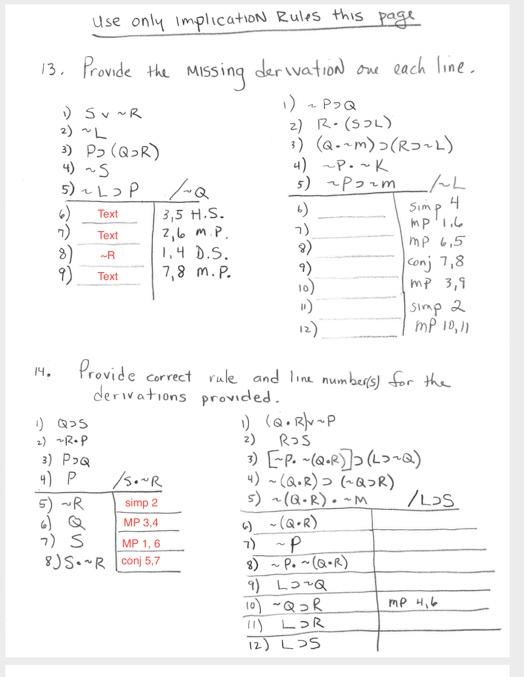 Use only Implication Rules this page
13. Provide the missing derivation one each line.
1) S v ~R
2) ~L
3) P⊃(Q⊃R)
4) ~S
5) ~L⊃P /~Q
6) Text 3,5 H.S.
7) Text 2,6 M.P.
8) ~R 1,4 D.S.
9) Text 7,8 M.P.
1) ~P⊃Q
2) R•(S⊃L)
3) (Q•~m)⊃(R⊃~L)
4) ~P•~K
5) ~P⊃~m /~L
6) Simp 4
7) mp 1,6
8) mp 6,5
9) Conj 7,8
10) mp 3,9
11) Simp 2
12) mp 10,11
14. Provide correct rule and line number(s) for the
derivations provided.
1) Q⊃S
2) ~R•P
3) P⊃Q
4) P /S•~R
5) ~R simp 2
6) Q MP 3,4
7) S MP 1, 6
8) S•~R conj 5,7
1) (Q•R)v~P
2) R⊃S
3) [~P•~(Q•R)]⊃(L⊃~Q)
4) ~(Q•R)⊃(~Q⊃R)
5) ~(Q•R)•~M /L⊃S
6) ~(Q•R)
7) ~P
8) ~P•~(Q•R)
9) L⊃~Q
10) ~Q⊃R mp 4,6
11) L⊃R
12) L⊃S